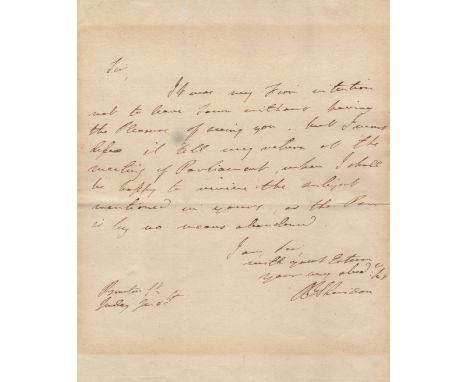 Sir,
It was my Firm intention
not to leave Town without having
the Pleasure of seeing you. but I must
defer it till my return at the
meeting of Parliament, when I shall
be happy to revive the subject
mentioned in yours, as the Plan
is by no means abandoned
I am, Sir,
with great Esteem
your very obed
Bruton St
R B Sheridan